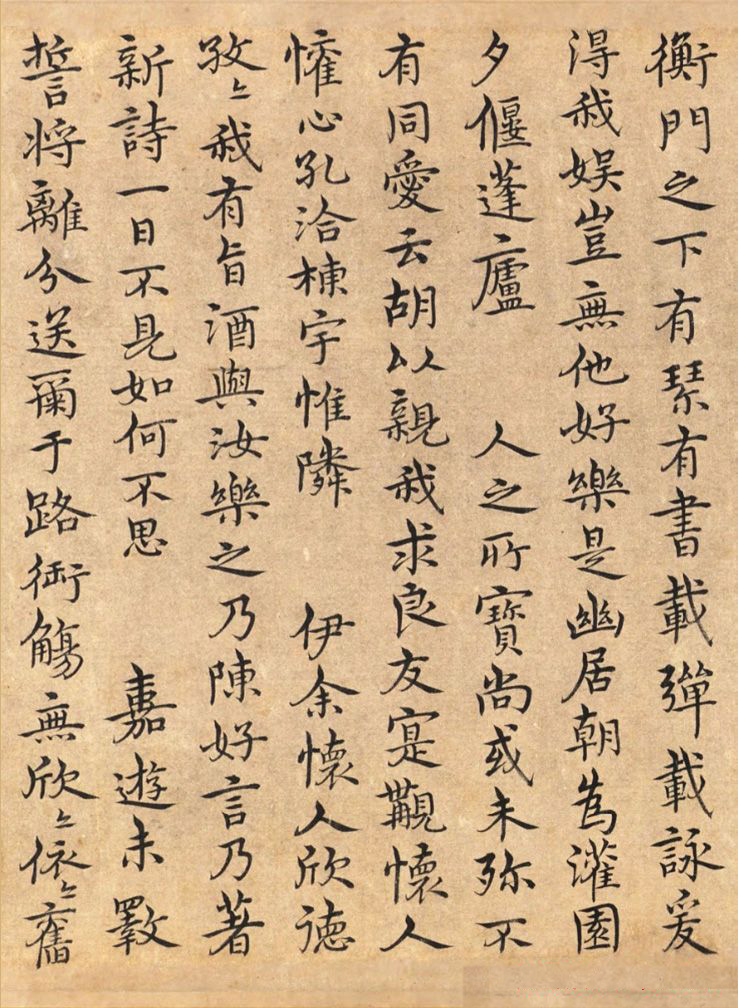 衡門之下有琴有書載彈載詠爰
得我娛豈無他好樂是幽居朝為灌園
夕偃蓬廬　人之所寶尚或未珎不
有同愛云胡以親我求良友寔覯懷人
懽心孔洽棟宇惟隣　伊余懷人欣德
孜〻我有旨酒與汝樂之乃陳好言乃著
新詩一日不見如何不思　嘉遊未斁
誓將離分送爾于路銜觴無欣〻依〻舊